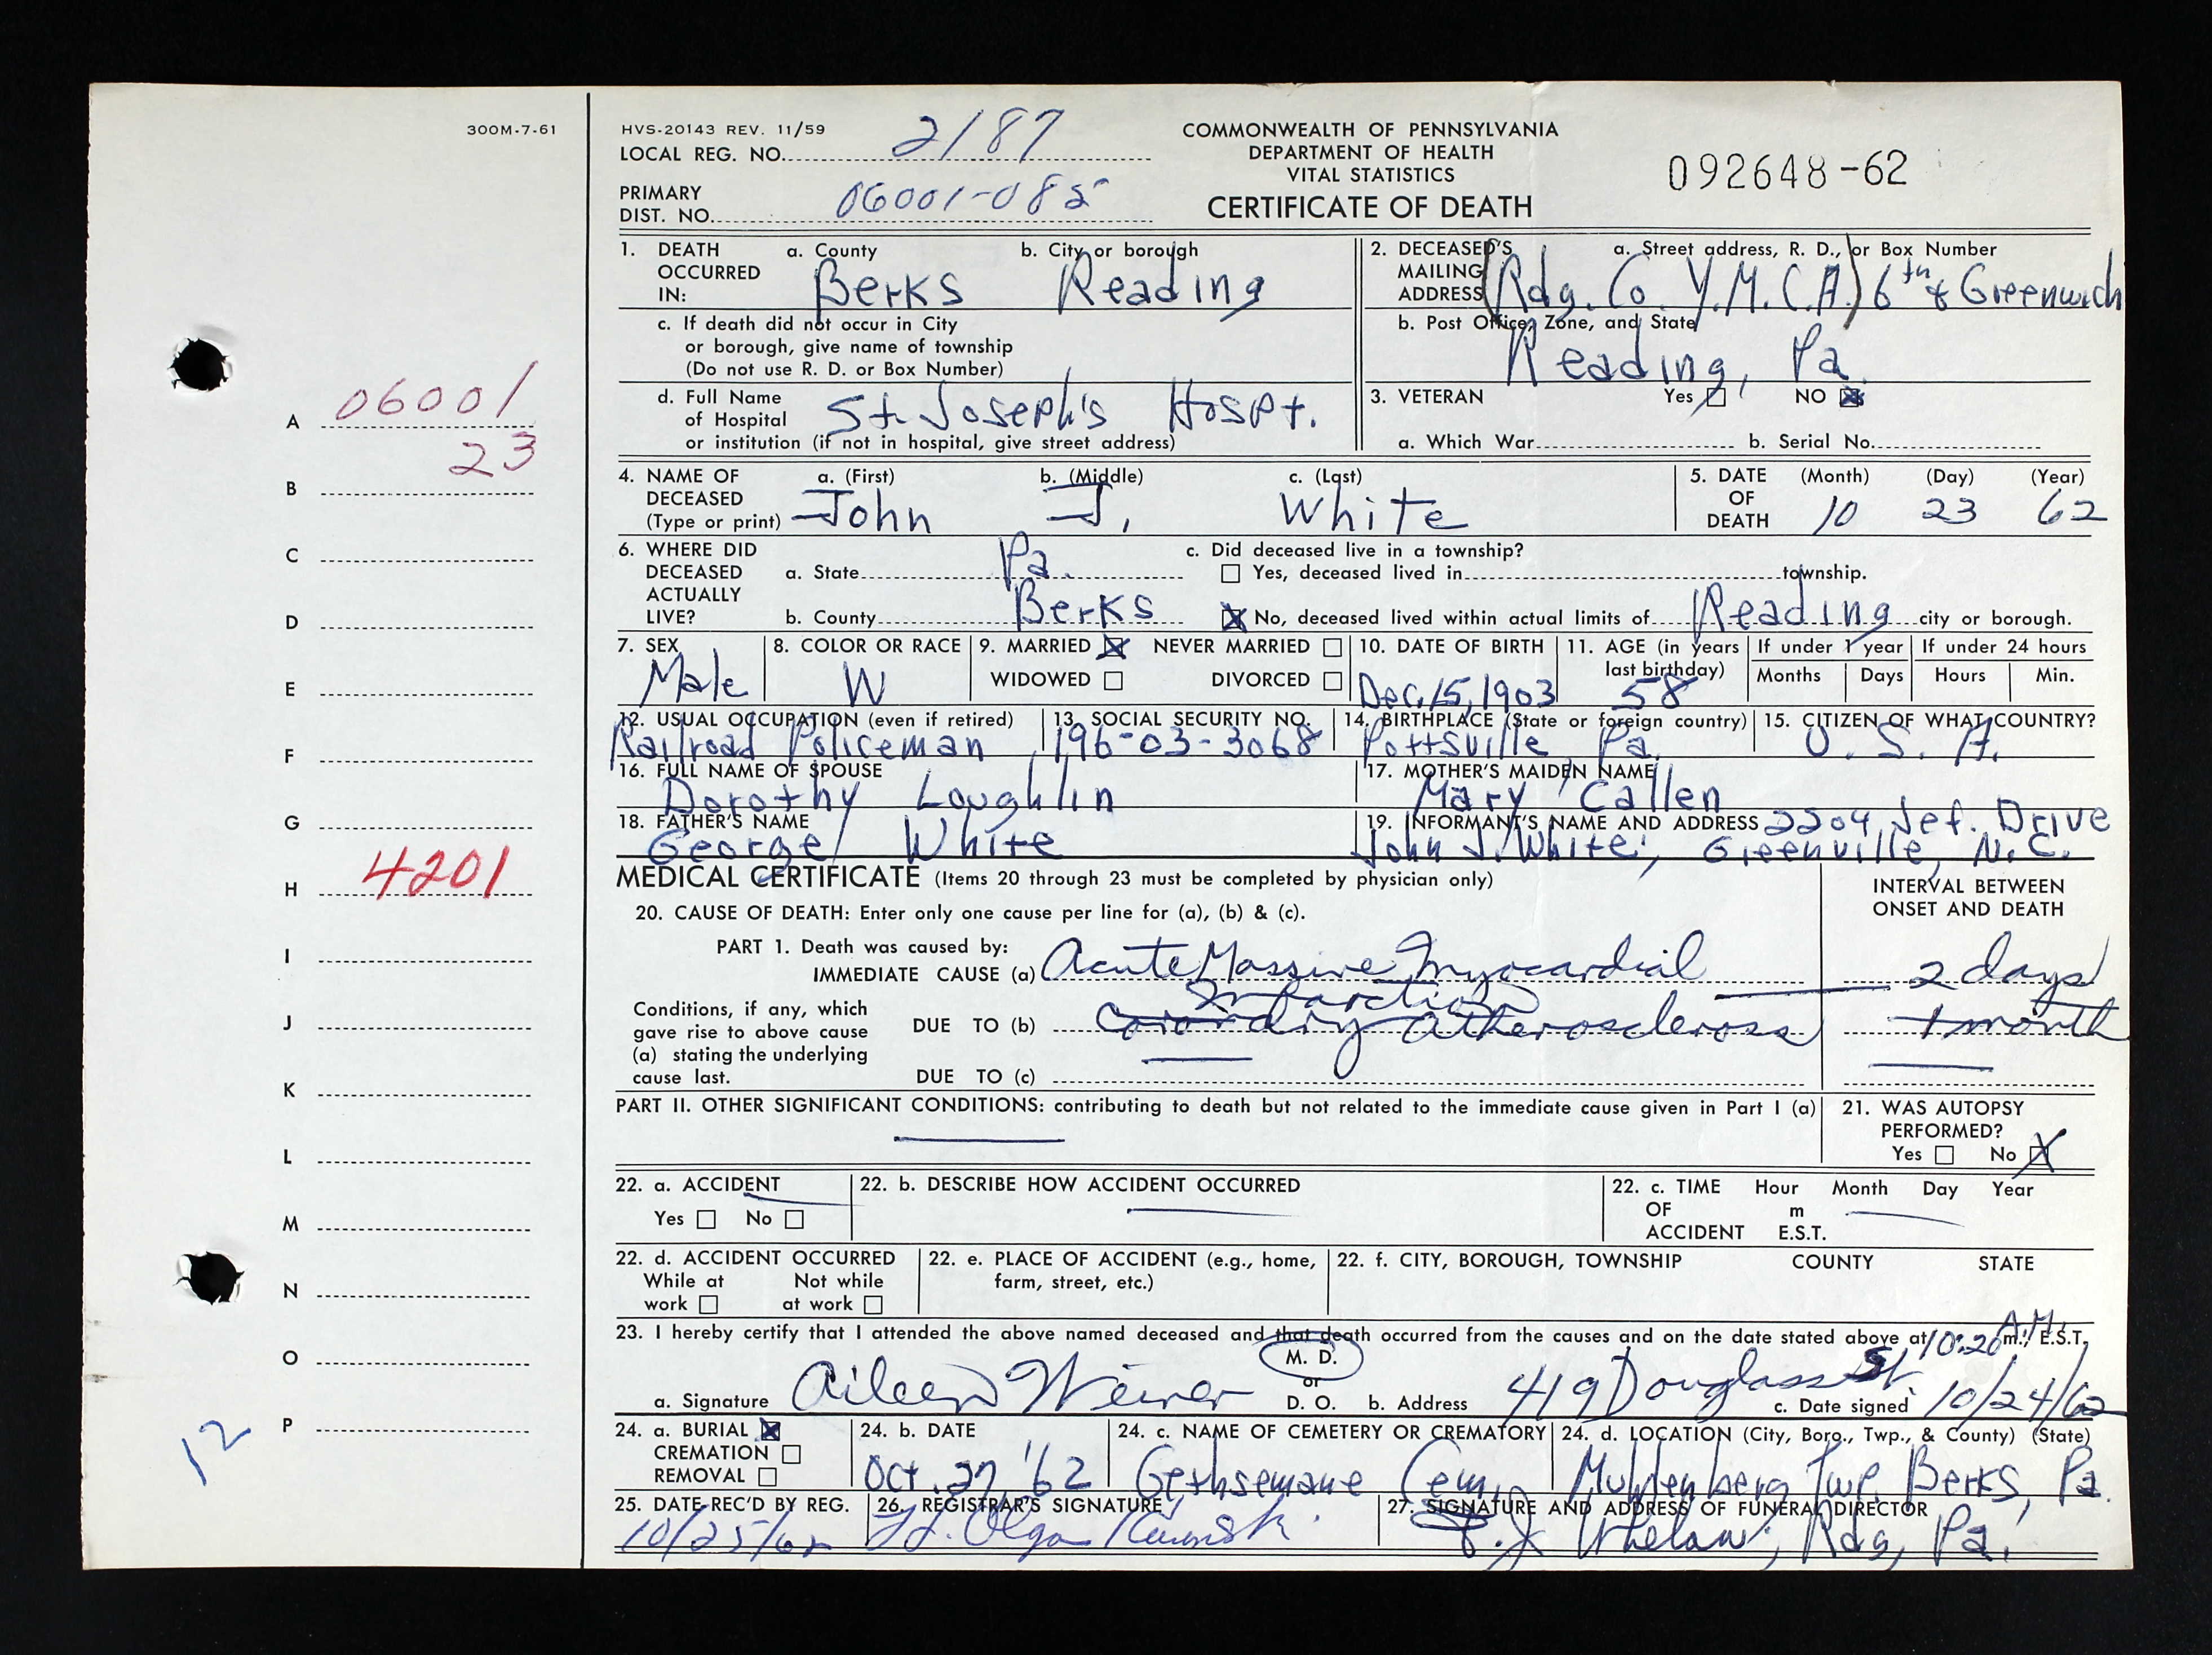 300M-7-61
HVS-20143 REV. 11/59
LOCAL REG. NO. 2187
PRIMARY
DIST. NO. 06001-085
COMMONWEALTH OF PENNSYLVANIA
DEPARTMENT OF HEALTH
VITAL STATISTICS
CERTIFICATE OF DEATH
092648-62
A 06001
23
B
C
D
E
F
G
H 4201
I
J
K
L
M
N
O
P
12
1. DEATH OCCURRED IN: a. County b. City or borough
Berks Reading
c. If death did not occur in City
or borough, give name of township
(Do not use R. D. or Box Number)
d. Full Name
of Hospital St. Joseph's Hospt.
or institution (if not in hospital, give street address)
2. DECEASED'S MAILING ADDRESS a. Street address, R. D., or Box Number
(Rdg. Co. Y.M.C.A.) 6th & Greenwich
b. Post Office, Zone, and State
Reading, Pa.
3. VETERAN Yes NO
a. Which War b. Serial No.
4. NAME OF DECEASED (Type or print) a. (First) b. (Middle) c. (Last)
John J. White
5. DATE OF DEATH (Month) (Day) (Year)
10 23 62
6. WHERE DID DECEASED ACTUALLY LIVE?
a. State Pa.
b. County Berks
c. Did deceased live in a township?
Yes, deceased lived in township.
No, deceased lived within actual limits of Reading city or borough.
7. SEX
Male
8. COLOR OR RACE
W
9. MARRIED NEVER MARRIED
WIDOWED DIVORCED
10. DATE OF BIRTH
Dec. 15, 1903
11. AGE (in years last birthday)
58
If under 1 year
Months Days
If under 24 hours
Hours Min.
12. USUAL OCCUPATION (even if retired)
Railroad Policeman
13. SOCIAL SECURITY NO.
196-03-3068
14. BIRTHPLACE (State or foreign country)
Pottsville Pa.
15. CITIZEN OF WHAT COUNTRY?
U. S. A.
16. FULL NAME OF SPOUSE
Dorothy Loughlin
17. MOTHER'S MAIDEN NAME
Mary Callen
18. FATHER'S NAME
George White
19. INFORMANT'S NAME AND ADDRESS 2209 Jef. Drive
John J. White, Greenville, N.C.
MEDICAL CERTIFICATE (Items 20 through 23 must be completed by physician only)
INTERVAL BETWEEN
ONSET AND DEATH
20. CAUSE OF DEATH: Enter only one cause per line for (a), (b) & (c).
PART 1. Death was caused by:
IMMEDIATE CAUSE (a) Acute Massive Myocardial 2 days
Infarction
Conditions, if any, which
gave rise to above cause
(a) stating the underlying
cause last.
DUE TO (b) Coronary atherosclerosis 1 month
DUE TO (c)
PART II. OTHER SIGNIFICANT CONDITIONS: contributing to death but not related to the immediate cause given in Part I (a)
21. WAS AUTOPSY
PERFORMED?
Yes No
22. a. ACCIDENT
Yes No
22. b. DESCRIBE HOW ACCIDENT OCCURRED
22. c. TIME OF ACCIDENT Hour Month Day Year
m
E.S.T.
22. d. ACCIDENT OCCURRED
While at work Not while at work
22. e. PLACE OF ACCIDENT (e.g., home, farm, street, etc.)
22. f. CITY, BOROUGH, TOWNSHIP COUNTY STATE
23. I hereby certify that I attended the above named deceased and that death occurred from the causes and on the date stated above at 10:20 A.M. m., E.S.T.
a. Signature Aileen Weiner M. D. or D. O. b. Address 419 Douglass St. c. Date signed 10/24/62
24. a. BURIAL
CREMATION
REMOVAL
24. b. DATE
Oct. 27 '62
24. c. NAME OF CEMETERY OR CREMATORY
Gethsemane Cem.
24. d. LOCATION (City, Boro., Twp., & County) (State)
Muhlenberg Twp. Berks, Pa.
25. DATE REC'D BY REG.
10/25/62
26. REGISTRAR'S SIGNATURE
Olga
27. SIGNATURE AND ADDRESS OF FUNERAL DIRECTOR
J. Whelan, Rdg, Pa.